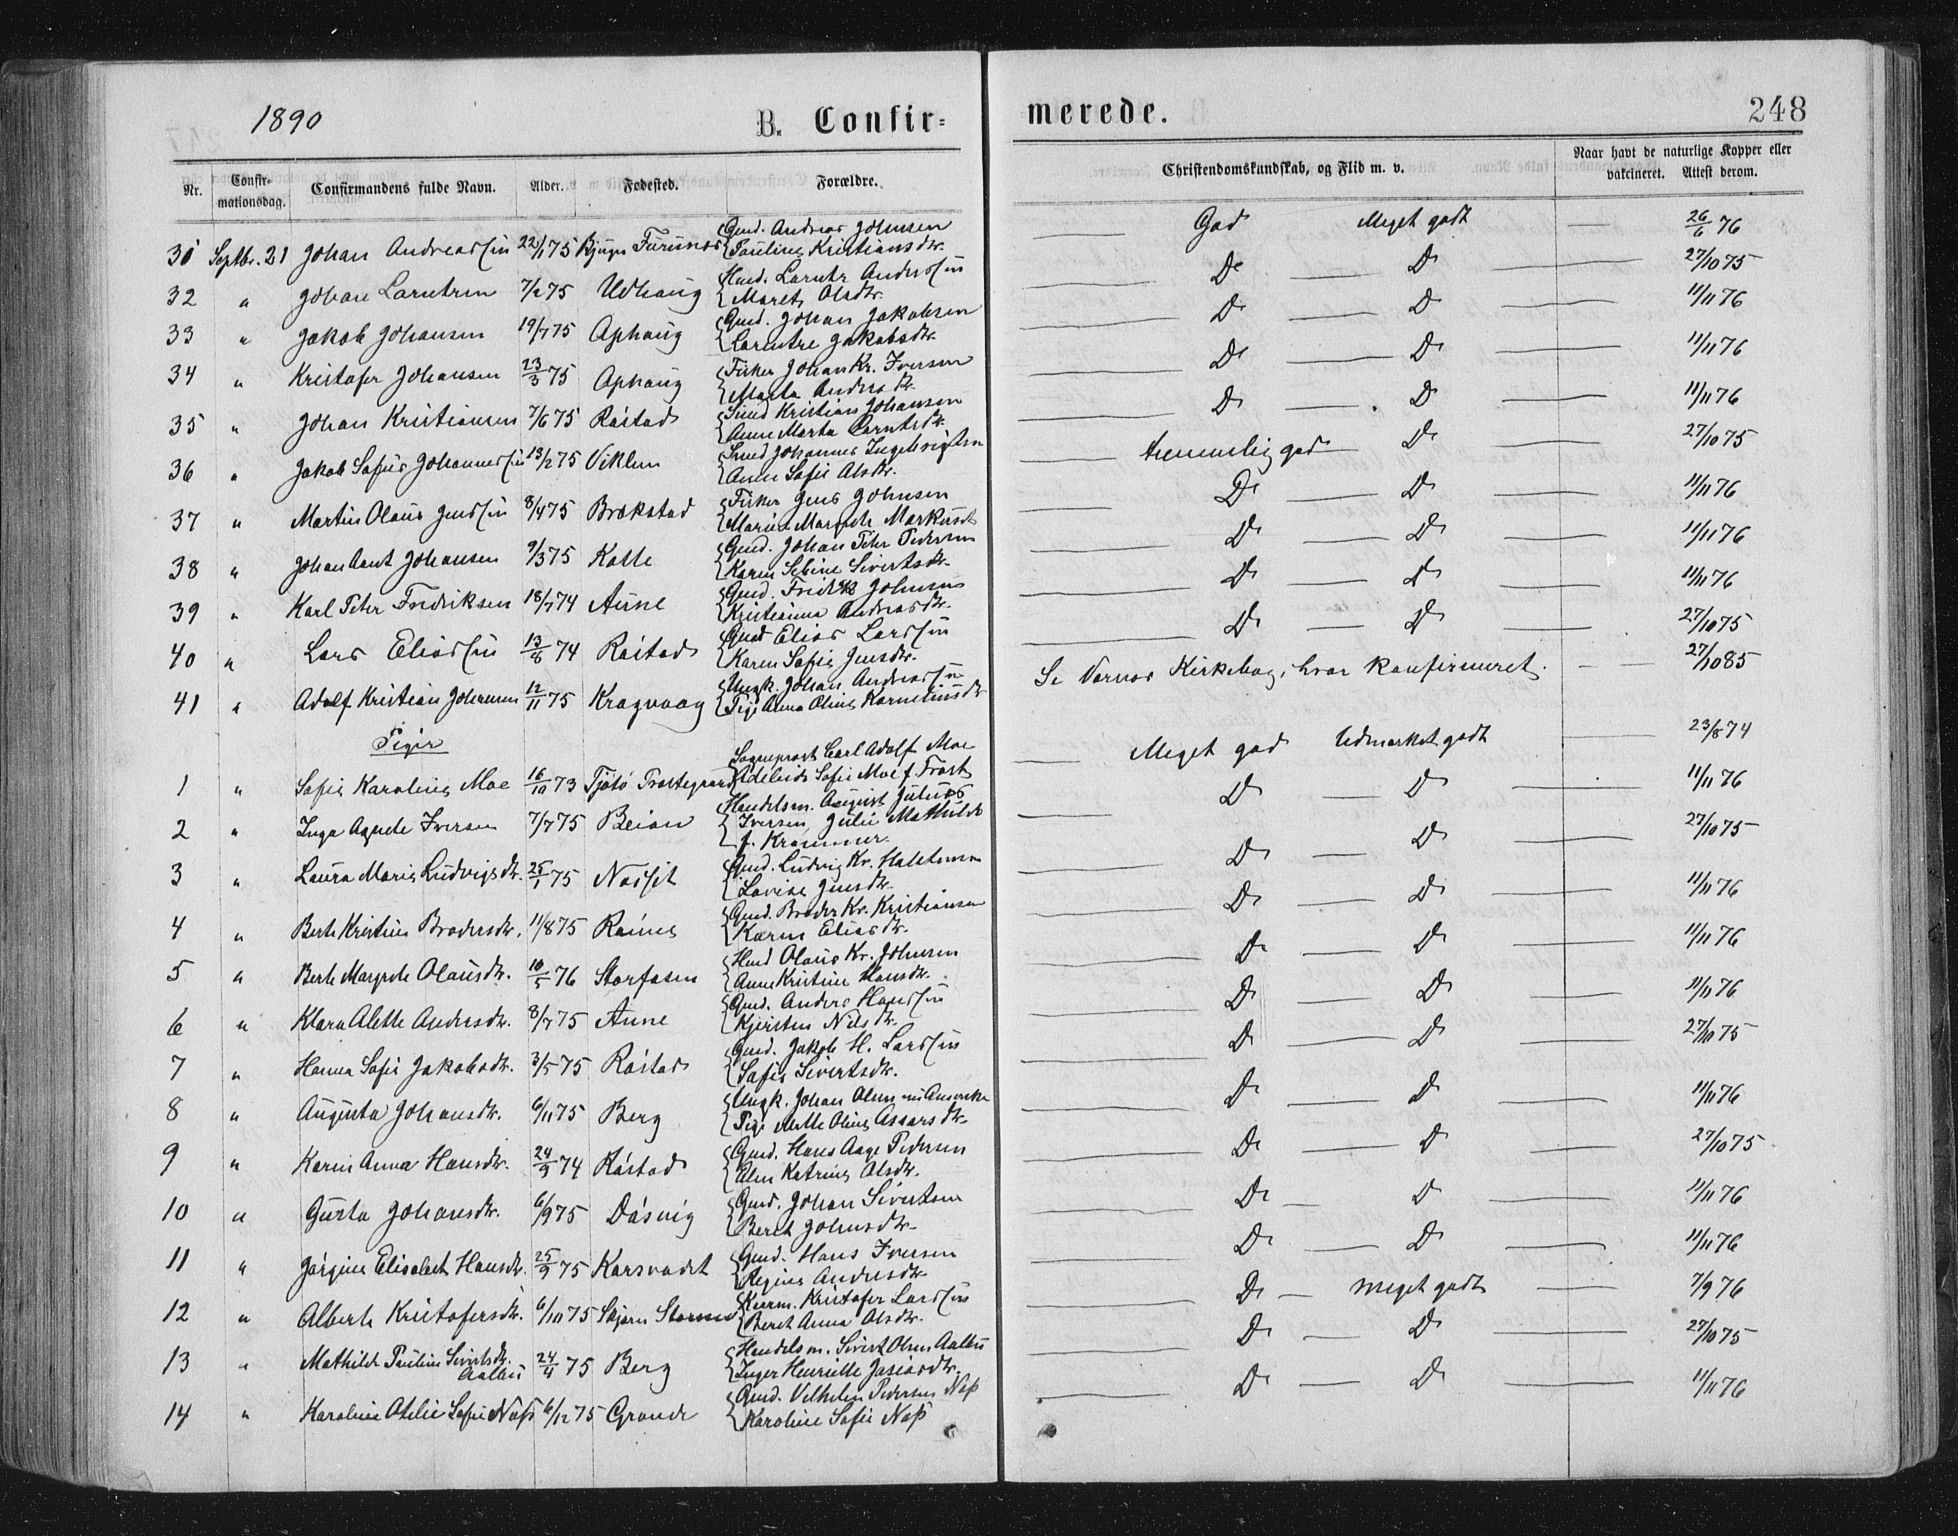 1890
B. Confir-
merede.
248
Nr.
Confir-
mationsdag.
Confirmandens fulde Navn.
Alder.
Fødested.
Forældre.
Christendomskundskab, og Flid m. v.
Naar havt de naturlige Kopper eller
vakcineret. Attest derom.
31 Septbr. 21 Johan Andreassen 22/1 75 Bjugn Furunes Gmd. Andreas Johnsen
Pauline Kristiansdtr. God Meget godt 26/6 76
32 " Johan Larntsen 7/2 75 Udhaug Hmd. Larnts Anderssen
Maret Olsdtr. Do Do 27/10 75
33 " Jakob Johansen 19/7 75 Ophaug Gmd. Johan Jakobsen
Larntse Jakobsdtr. Do Do 11/11 76
34 " Kristofer Johansen 23/3 75 Ophaug Fisker Johan Kr. Iversen
Marta Andersdtr. Do Do 11/11 76
35 " Johan Kristiansen 7/6 75 Røstad Smed Kristian Johansen
Anne Marta Larntsdtr. Do Do 11/11 76
36 " Jakob Sofus Johannessen 13/2 75 Viklem Smed Johannes Ingebrigtsen
Anne Sofie Olsdtr. temmelig god Do 27/10 75
37 " Martin Olaus Jenssen 8/4 75 Brekstad Fisker Jens Johnsen
Marie Margrete Markusdtr Do Do 11/11 76
38 " Johan Arnt Johansen 9/3 75 Kotte Gmd. Johan Peter Pedersen
Karen Sebine Sivertsdtr. Do Do 11/11 76
39 " Karl Peter Fredriksen 18/7 74 Aune Gmd. Fredrik Johnsen
Kristianna Andreasdtr. Do Do 11/11 76
40 " Lars Eliassen 13/8 74 Røstad Gmd Elias Larssen
Karen Sofie Jensdtr. Do Do 27/10 75
41 " Adolf Kristian Johansen 12/11 75 Kragvaag Ungk. Johan Andreassen
Pige Anna Oline Korneliusdtr Se Vernes Kirkebog, hvor konfirmeret. 27/10 85
Piger
1 " Sofie Karoline Moe 16/10 73 Tjøtø Prestegaard Sogneprest Carl Adolf Moe
Adelaide Sofie Moe f. Frost Meget god Udmerket godt 23/8 74
2 " Inga Agnete Iversen 7/7 75 Beian Handelsm. August Julius
Iversen, Julie Mathilde
f. Krømmer. Do Do 11/11 76
3 " Laura Marie Ludvigsdtr. 25/1 75 Gmd. Ludvig Kr.
Lovise Jensdtr. Do Do 27/10 75
4 " Berte Kristine Brodersdtr. 11/8 75 Gmd. Broder Kr. Kristiansen
Karen Eliasdtr. Do Do 11/11 76
5 " Berte Margrete Olausdtr. 10/5 76 Storfosen Hmd Olaus Kr. Johnsen
Anne Kristine Hansdtr. Do Do 11/11 76
6 " Klara Alette Andersdtr. 8/7 75 Aune Gmd. Anders Hanssen
Kjersten Nilsdtr. Do Do 11/11 76
7 " Hanna Sofie Jakobsdtr. 3/5 75 Røstad Gmd. Jakob H. Larssen
Sofie Sivertsdtr. Do Do 27/10 75
8 " Augusta Johansdtr. 6/11 75 Berg Ungk. Johan Olsen
Pige Mette Oline Assarsdtr. Do Do 11/11 76
9 " Karen Anna Hansdtr. 24/9 74 Røstad Gmd. Hans Aage Pedersen
Elen Katrine Olsdtr. Do Do 27/10 75
10 " Gusta Johansdtr. 6/9 75 Døsvig Gmd. Johan Sivertsen
Beret Johnsdtr. Do Do 11/11 76
11 " Jørgine Elisabet Hansdtr. 25/9 75 Karsvadet Gmd. Hans Iversen
Regine Andersdtr. Do Do 11/11 76
12 " Alberte Kristofersdtr. 6/10 75 Skjørn Kvernm. Kristofer Larssen
Beret Anna Olsdtr. Do Meget godt 7/9 76
13 " Mathilde Pauline Sivertsdtr.
Aalbu 24/4 75 Berg Handelsm. Sivert Olsen Aalbu
Inger Henriette Josiasdtr. Do Do 27/10 75
14 " Karoline Otelie Sofie Næss 6/12 75 Grande Gmd. Vilhelm Pedersen Næss
Karoline Sofie Næss Do Do 11/11 76